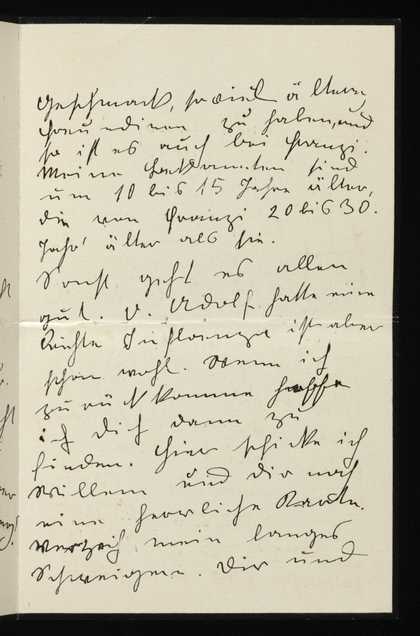 Geschmack, so viel ältere,
Freundinen zu haben, und
so ist es auch bei Franzi.
Meine Bekannten sind
um 10 bis 15 Jahre älter,
die von Franzi 20 bis 30.
Jahr' älter als sie.
Sonst geht es allen
gut. O. Adolf hatte eine
leichte Influenza ist aber
schon wohl. Wenn ich
zurückkomme hoffe
ich dich dann zu
finden. Hier schicke ich
Willem und dir noch
eine herrliche Karte.
Verzeih mein langes
Schweigen. Dir und